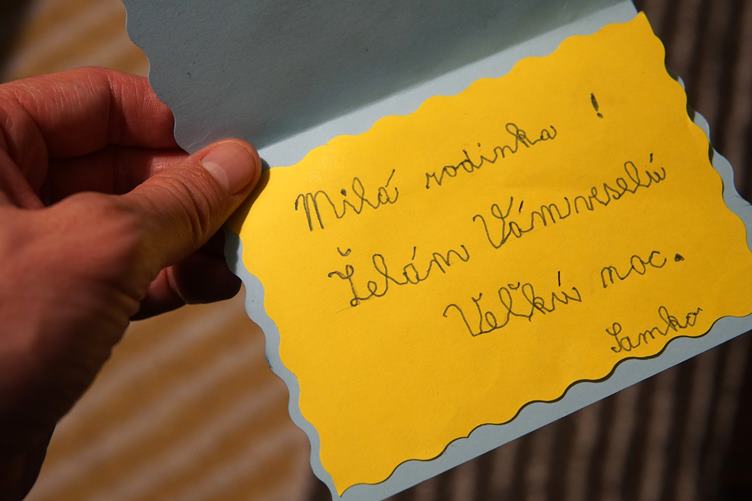 Milá rodinka !
Želám Vám veselú
Veľkú noc.
Samko